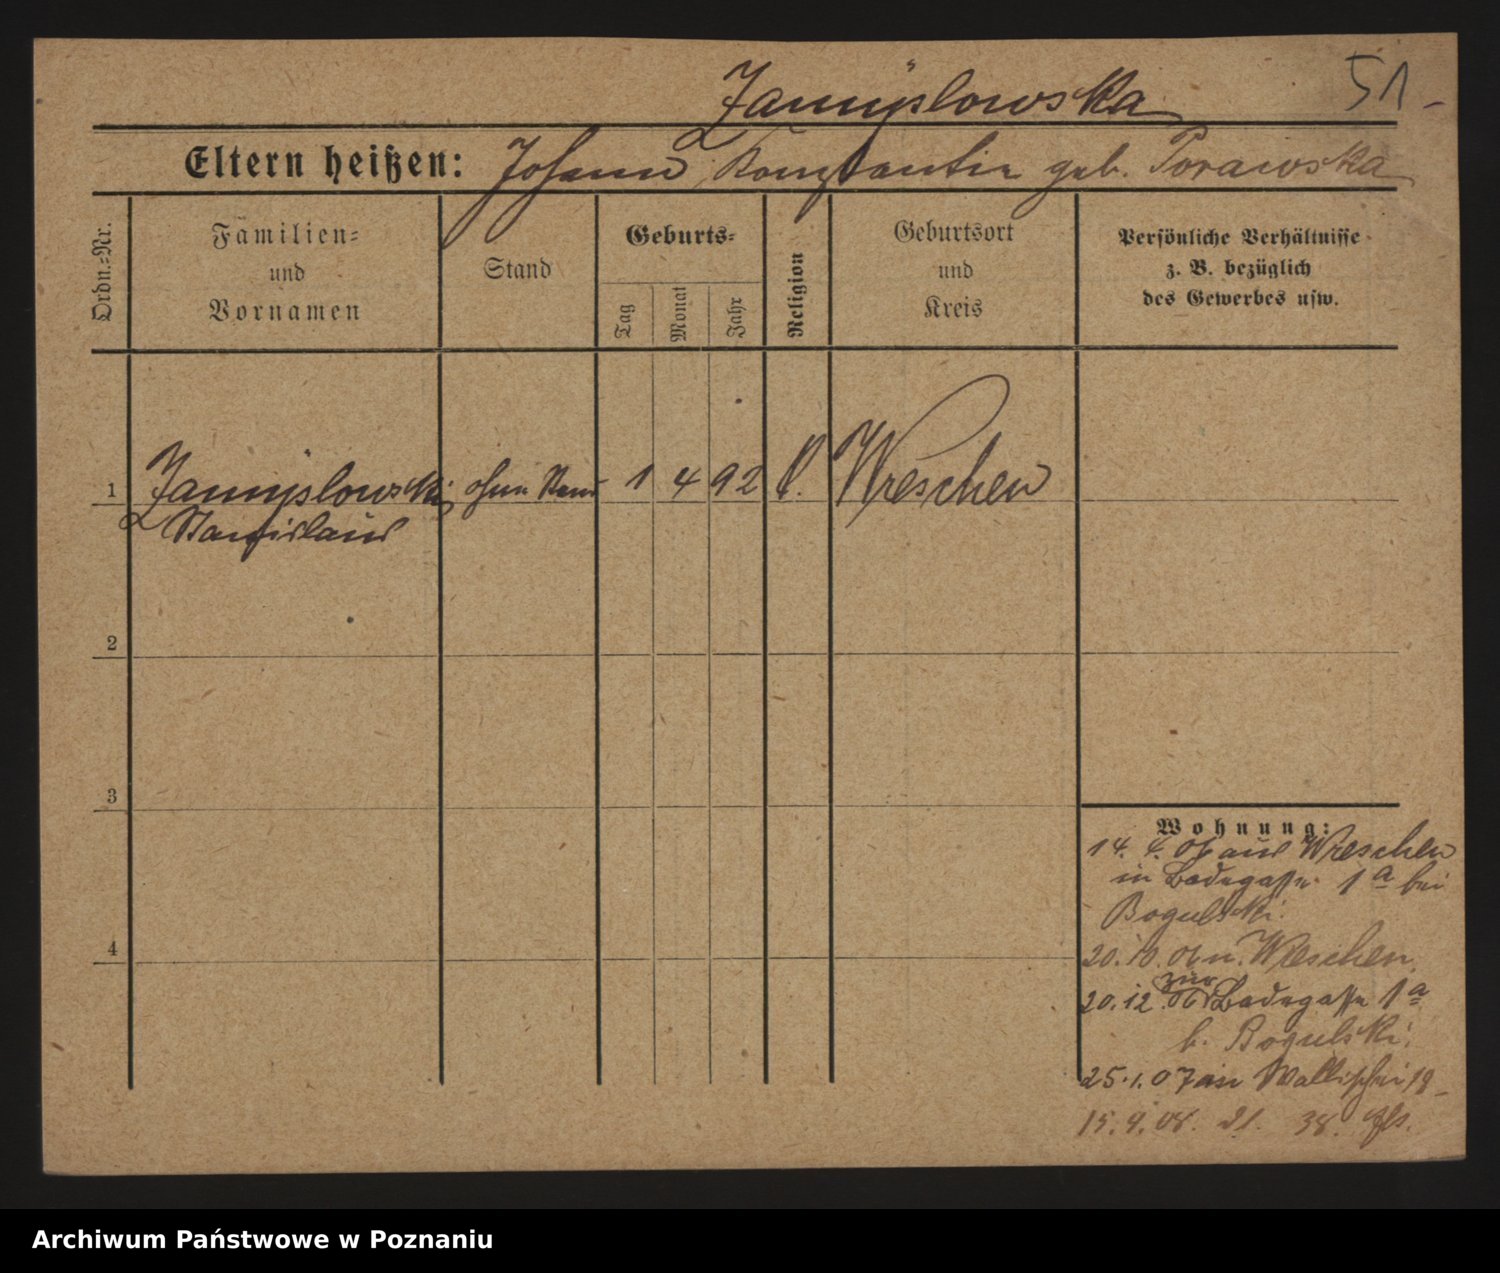 Zamÿslowska
51
Eltern heißen: Johann, Konstantia geb. Porawska
Ordn.-Nr.
Familien-
und
Vornamen
Stand
Geburts-
Tag
Monat
Jahr
Religion
Geburtsort
und
Kreis
Persönliche Verhältnisse
z. B. bezüglich
des Gewerbes usw.
1 Zamÿslowski ohne Stand 1 4 92 k. Wreschen
Stanislaus
2
3
4
Wohnung:
14. 4. 06 aus Wreschen
in Badegasse 1a bei
Bogulski.
20. 10. 06 n. Wreschen.
zur
20. 12. 06 Badegasse 1a
b. Bogulski.
25. 1. 07 Wallischei 18
15. 9. 08. 21. 38.
Archiwum Państwowe w Poznaniu